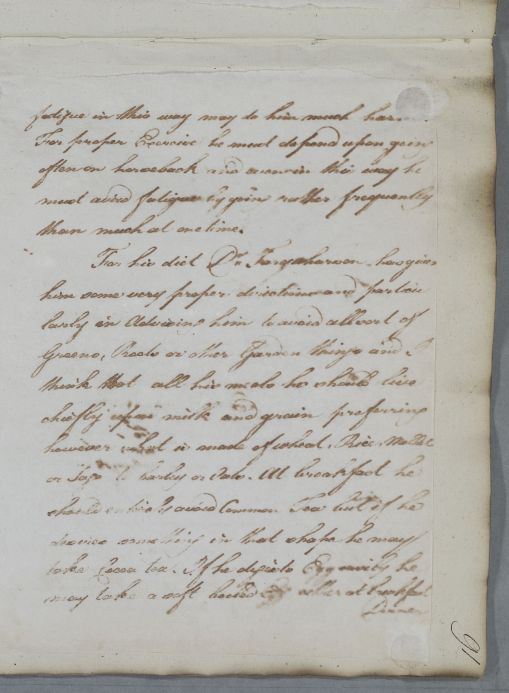 fatigue in this way may do him much harm.
For proper Exercise he must depend upon goin
often on horseback and even in this way he
must avoid fatigue by goin rather frequently
than much at one time.
For his diet Dr. Farquharson has given
him some very proper directions and particu
larly in Advising him to avoid all sort of
Greens, Roots or other Garden things and I
think that all his meals he should live
chiefly upon milk and grain preferring
however what is made of wheat, Rice, Millet
or Sago to barley or oats. At breakfast he
should entirely avoid Common Tea but if he
desires something in that shape he may
take Cocoa tea. If he digests Eggs easily he
may take a soft boiled Egg either at breakfast
Dinner
16